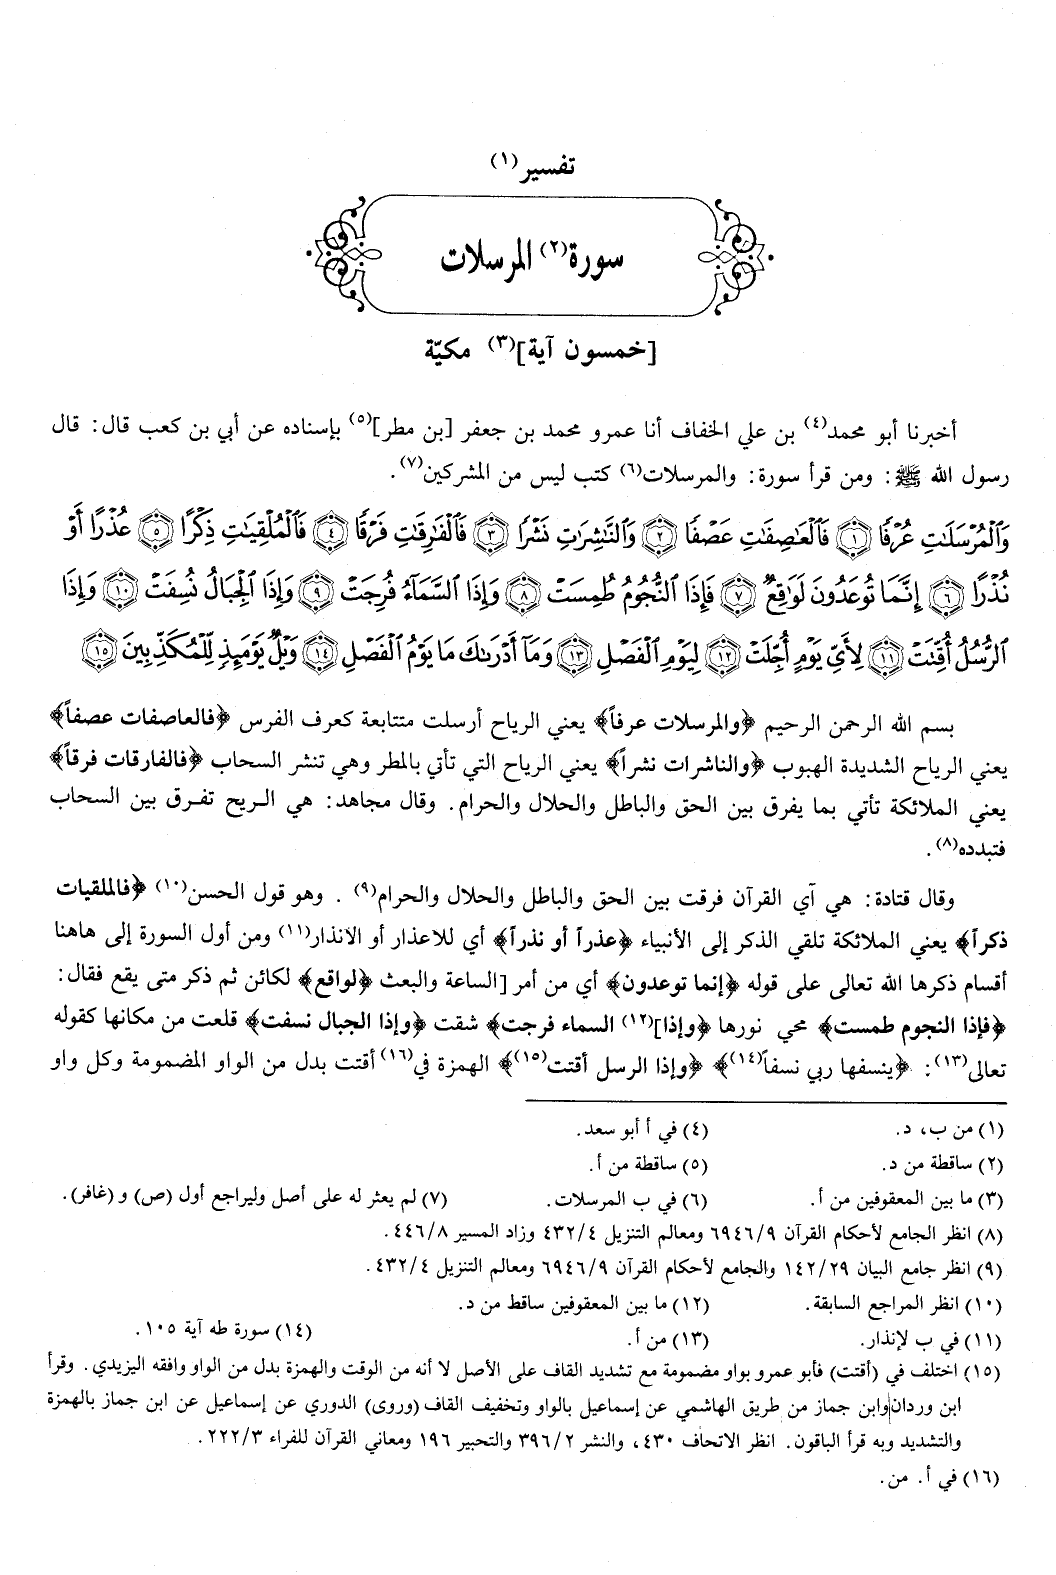 تفسير(١)
سورة(٢) المرسلات
[خمسون آية](٣) مكيّة
أخبرنا أبو محمد(٤) بن علي الخفاف أنا عمرو محمد بن جعفر [بن مطر](٥) بإسناده عن أبي بن كعب قال: قال
رسول الله ﷺ: ومن قرأ سورة: والمرسلات(٦) كتب ليس من المشركين(٧).
وَٱلۡمُرۡسَلَٰتِ عُرۡفٗا ١ فَٱلۡعَٰصِفَٰتِ عَصۡفٗا ٢ وَٱلنَّٰشِرَٰتِ نَشۡرٗا ٣ فَٱلۡفَٰرِقَٰتِ فَرۡقٗا ٤ فَٱلۡمُلۡقِيَٰتِ ذِكۡرًا ٥ عُذۡرًا أَوۡ
نُذۡرًا ٦ إِنَّمَا تُوعَدُونَ لَوَٰقِعٞ ٧ فَإِذَا ٱلنُّجُومُ طُمِسَتۡ ٨ وَإِذَا ٱلسَّمَآءُ فُرِجَتۡ ٩ وَإِذَا ٱلۡجِبَالُ نُسِفَتۡ ١٠ وَإِذَا
ٱلرُّسُلُ أُقِّتَتۡ ١١ لِأَيِّ يَوۡمٍ أُجِّلَتۡ ١٢ لِيَوۡمِ ٱلۡفَصۡلِ ١٣ وَمَآ أَدۡرَىٰكَ مَا يَوۡمُ ٱلۡفَصۡلِ ١٤ وَيۡلٞ يَوۡمَئِذٖ لِّلۡمُكَذِّبِينَ ١٥
بسم الله الرحمن الرحيم ﴿والمرسلات عرفاً﴾ يعني الرياح أرسلت متتابعة كعرف الفرس ﴿فالعاصفات عصفاً﴾
يعني الرياح الشديدة الهبوب ﴿والناشرات نشراً﴾ يعني الرياح التي تأتي بالمطر وهي تنشر السحاب ﴿فالفارقات فرقاً﴾
يعني الملائكة تأتي بما يفرق بين الحق والباطل والحلال والحرام. وقال مجاهد: هي الريح تفرق بين السحاب
فتبدده(٨).
وقال قتادة: هي آي القرآن فرقت بين الحق والباطل والحلال والحرام(٩). وهو قول الحسن(١٠) ﴿فالملقيات
ذكراً﴾ يعني الملائكة تلقي الذكر إلى الأنبياء ﴿عذراً أو نذراً﴾ أي للاعذار أو الانذار(١١) ومن أول السورة إلى هاهنا
أقسام ذكرها الله تعالى على قوله ﴿إنما توعدون﴾ أي من أمر [الساعة والبعث ﴿لواقع﴾ لكائن ثم ذكر متى يقع فقال:
﴿فإذا النجوم طمست﴾ محي نورها ﴿وإذا](١٢) السماء فرجت﴾ شقت ﴿وإذا الجبال نسفت﴾ قلعت من مكانها كقوله
تعالى(١٣): ﴿ينسفها ربي نسفاً(١٤)﴾ ﴿وإذا الرسل أقتت(١٥)﴾ الهمزة في(١٦) أقتت بدل من الواو المضمومة وكل واو
(١) من ب، د. (٤) في أ أبو سعد.
(٢) ساقطة من د. (٥) ساقطة من أ.
(٣) ما بين المعقوفين من أ. (٦) في ب المرسلات. (٧) لم يعثر له على أصل وليراجع أول (ص) و(غافر).
(٨) انظر الجامع لأحكام القرآن ٦٩٤٦/٩ ومعالم التنزيل ٤٣٢/٤ وزاد المسير ٤٤٦/٨.
(٩) انظر جامع البيان ١٤٢/٢٩ والجامع لأحكام القرآن ٦٩٤٦/٩ ومعالم التنزيل ٤٣٢/٤.
(١٠) انظر المراجع السابقة. (١٢) ما بين المعقوفين ساقط من د.
(١١) في ب لإنذار. (١٣) من أ. (١٤) سورة طه آية ١٠٥.
(١٥) اختلف في (أقتت) فأبو عمرو بواو مضمومة مع تشديد القاف على الأصل لا أنه من الوقت والهمزة بدل من الواو وافقه اليزيدي. وقرأ
ابن وردان وابن جماز من طريق الهاشمي عن إسماعيل بالواو وتخفيف القاف (وروى) الدوري عن إسماعيل عن ابن جماز بالهمزة
والتشديد وبه قرأ الباقون. انظر الاتحاف ٤٣٠، والنشر ٣٩٦/٢ والتحبير ١٩٦ ومعاني القرآن للفراء ٢٢٢/٣.
(١٦) في أ. من.